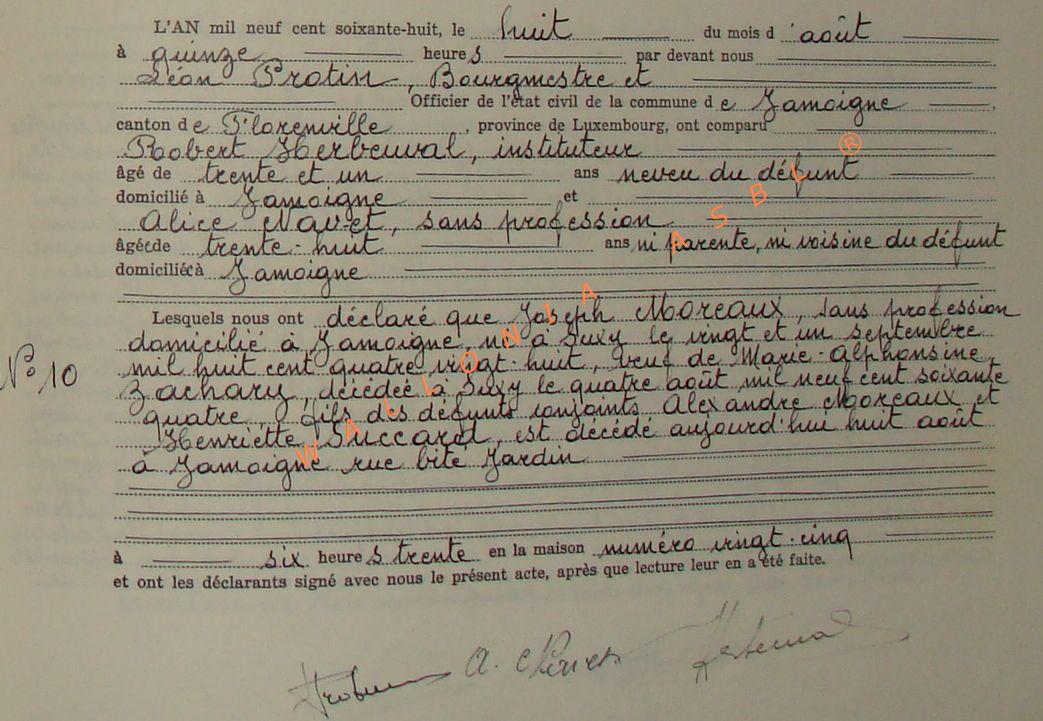 L'AN mil neuf cent soixante-huit, le huit du mois d'août
à quinze heures par devant nous
Léon Protin, Bourgmestre et
Officier de l'état civil de la commune de Jamoigne.
canton de Florenville, province de Luxembourg, ont comparu
Robert Herbeuval, instituteur
âgé de trente et un ans neveu du défunt
domicilié à Jamoigne et
Alice Navet, sans profession
âgée de trente-huit ans ni parente, ni voisine du défunt
domiciliée à Jamoigne
Lesquels nous ont déclaré que Joseph Moreaux, sans profession
domicilié à Jamoigne, né à Suxy le vingt et un septembre
mil huit cent quatre vingt-huit, veuf de Marie-Alphonsine
N° 10
Zachary, décédée à Suxy le quatre août mil neuf cent soixante
quatre, fils des défunts conjoints Alexandre Moreaux et
Henriette Succard, est décédé aujourd'hui huit août
à Jamoigne rue Cité Jardin
à six heures trente en la maison numéro vingt-cinq
et ont les déclarants signé avec nous le présent acte, après que lecture leur en a été faite.
A.
WALLONIA ASBL ®